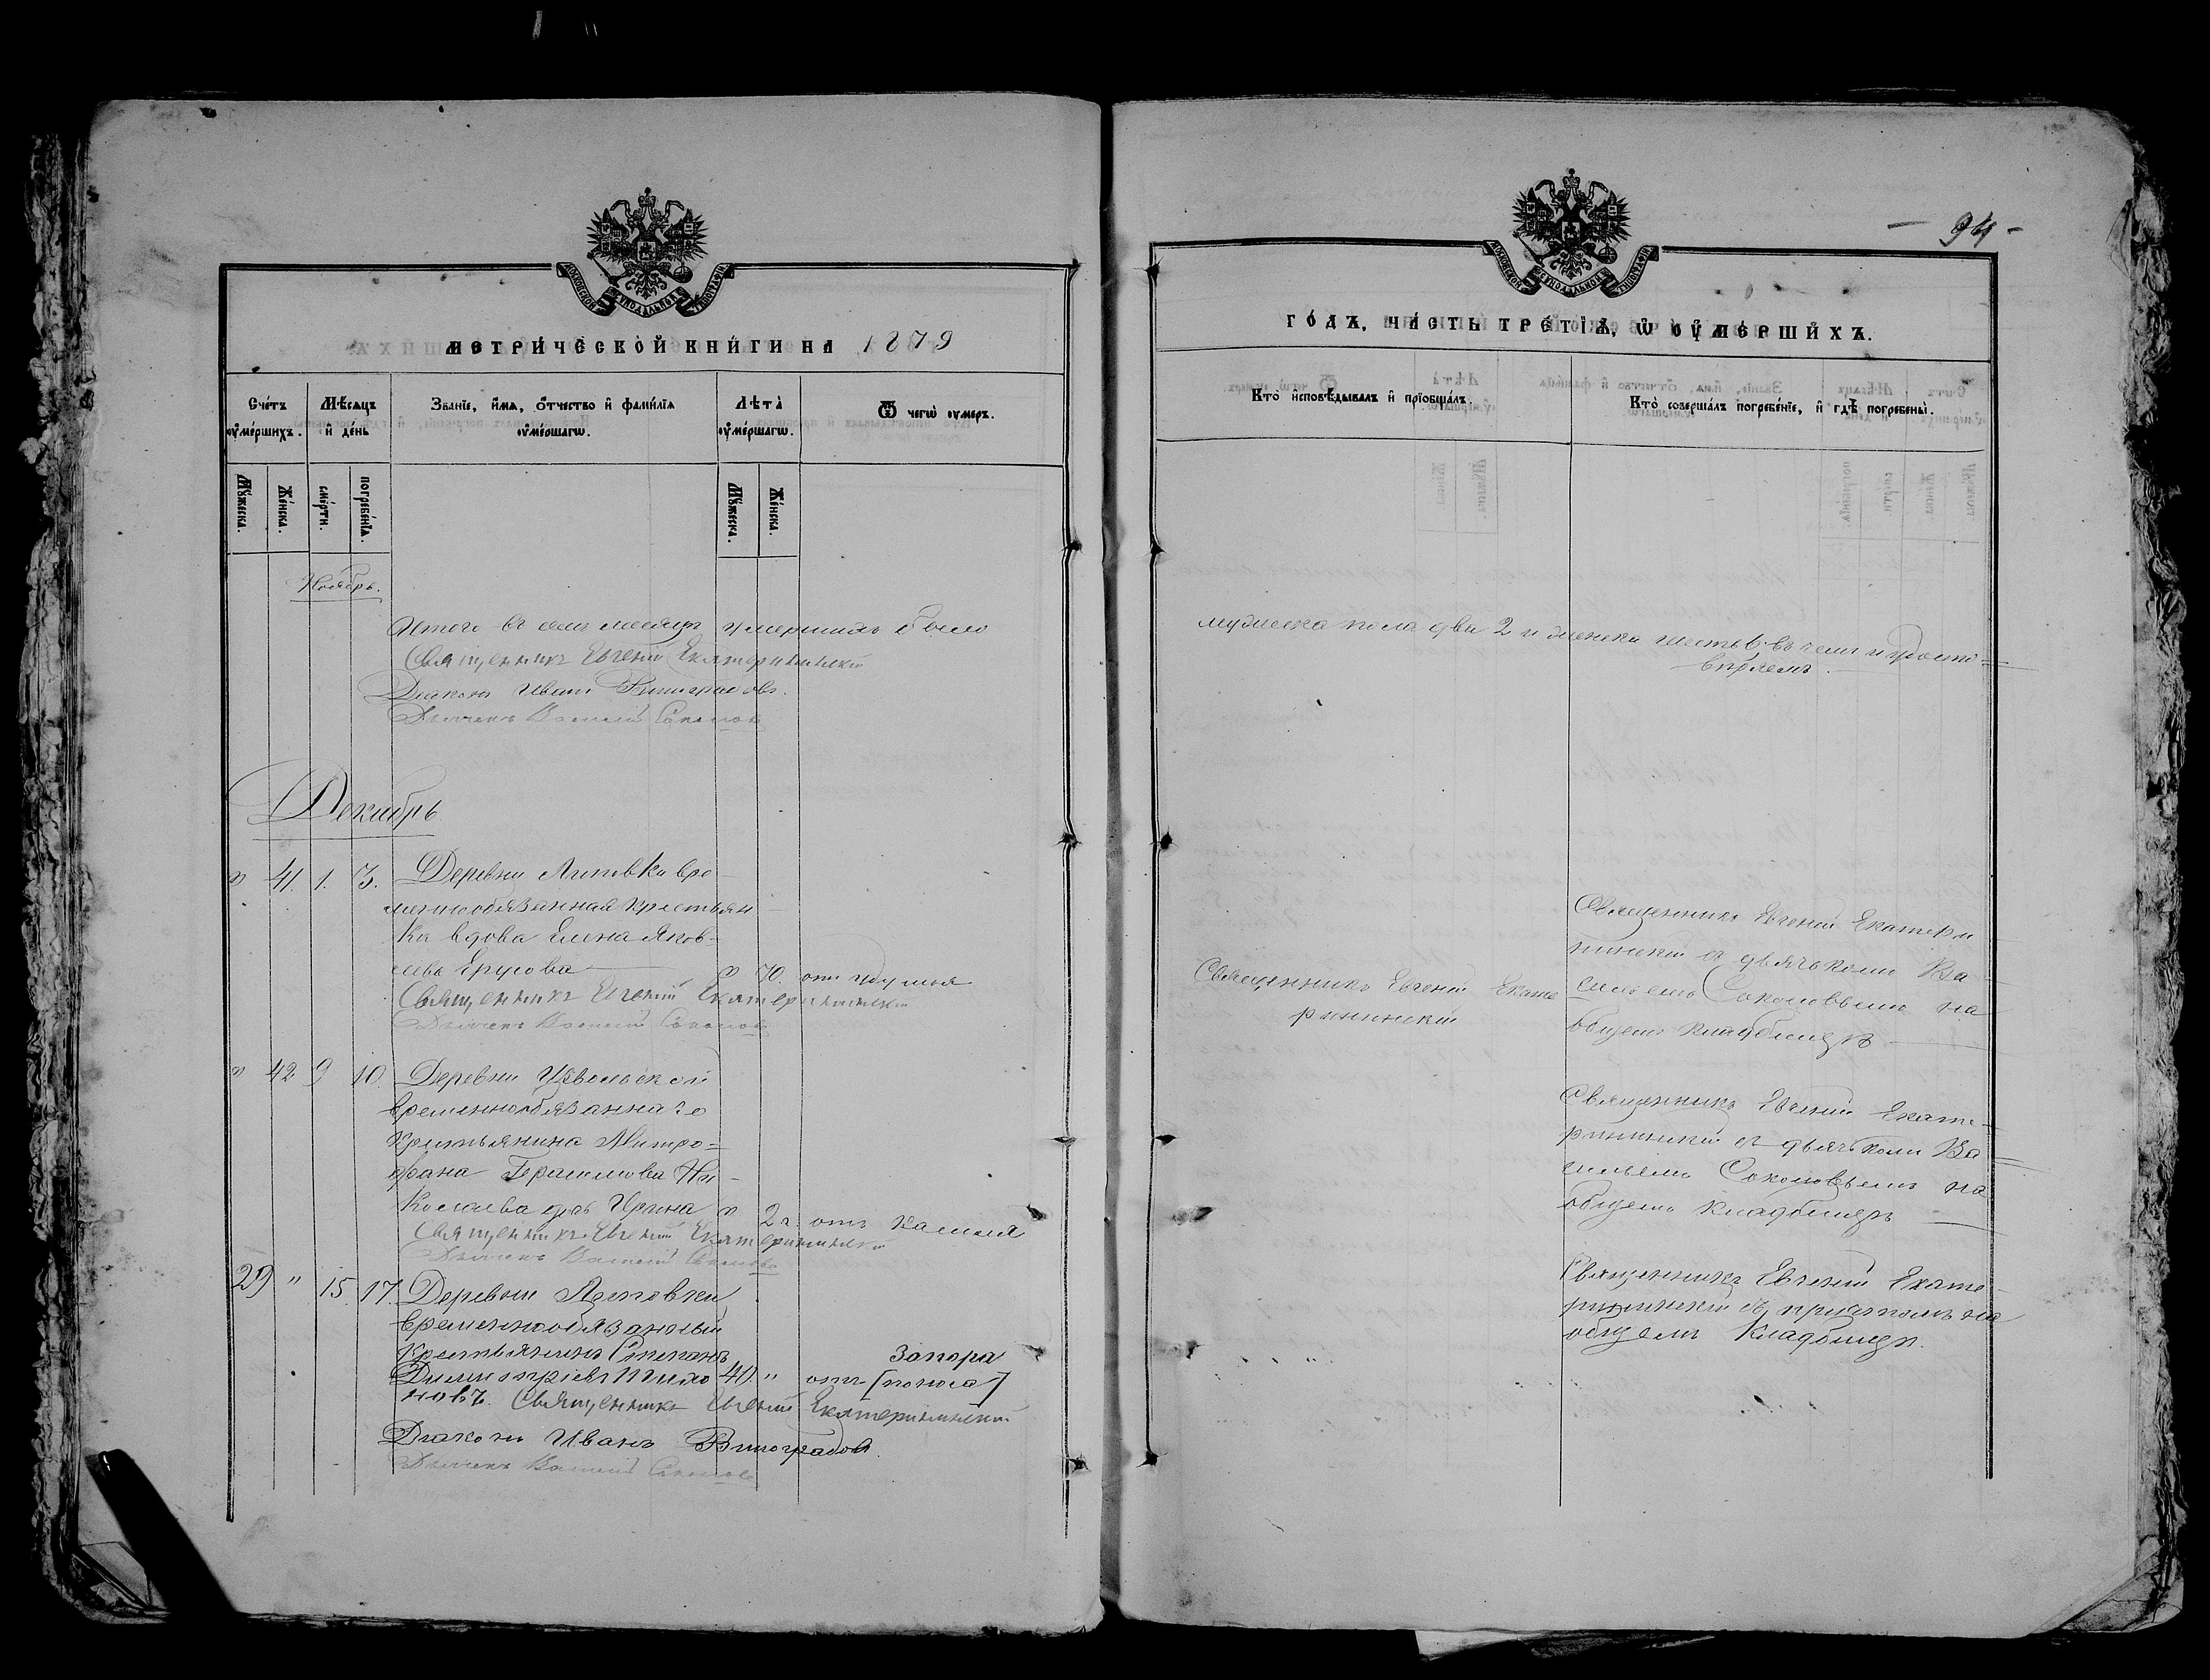 МОСКОВСКОЙ СѴНОДАЛЬНОЙ ТИПОГРАФІИ
МЕТРИ́ЧЕСКОЙ КНИ́ГИ НА 1879
Сче́тъ ᲂу҆ме́ршихъ.
Мѣ́сяцъ и҆ де́нь
Зва́нїе, и҆́мѧ, ѻ҆́тчество и҆ фамѝлїѧ ᲂу҆ме́ршагѡ.
Лѣта̀ ᲂу҆ме́ршагѡ.
Ѿ чегѡ̀ ᲂу҆́меръ.
Мꙋ́жеска.
Же́нска.
сме́рти.
погребе́нїѧ.
Мꙋ́жеска.
Же́нска.
Ноябрь.
Итого въ семъ месяце умершихъ было
Священникъ Евгеній Екатерининскій
Діаконъ Иванъ Виноградовъ.
Дьячекъ Василій Соколовъ
Декабрь
" 41. 1. 3. Деревни Липовки вре
меннообязанная крестьян
ка вдова Елена Яков-
лева Ерусова " 70. отъ удушья
Священникъ Евгеній Екатерининскій
Дьячекъ Василій Соколовъ
" 42 9 10. Деревни
временнообязаннаго
крестьянина Митро=
фана Герасимова Ни-
колаева дочь Ирина " 2 г. отъ кашля
Священникъ Евгеній Екатерининскій
Дьячекъ Василій Соколовъ
29 " 15. 17. Деревни Липовки
временнообязанный
крестьянинъ Степанъ запора
Димитріевъ Тихо 40. " отъ [поноса]
новъ. Священникъ Евгеній Екатерининскій
Діаконъ Иванъ Виноградовъ.
Дьячекъ Василій Соколовъ
- 94 -
МОСКОВСКОЙ СѴНОДАЛЬНОЙ ТИПОГРАФІИ
ГО́ДЪ, ЧА́СТЬ ТРЕ́ТІѦ, Ѡ҆ ОУ҆МЕ́РШИХЪ.
Кто̀ и҆сповѣ́дывалъ и҆ прїѡбща́лъ.
Кто̀ соверша́лъ погребе́нїе, и҆ гдѣ̀ погребены̀.
мужеска пола два 2 и женска шесть 6. въ чемъ и удосто=
веряемъ.
Священникъ Евгеній Екате
рининскій
Священникъ Евгеній Екатери
нинскій съ дьячкомъ Ва
сильемъ Соколовымъ на
общемъ кладбище
Священникъ Евгеній Екате-
рининскій съ дьячкомъ Ва
сильемъ Соколовымъ на
общемъ кладбище
Священникъ Евгеній Екате
рининскій съ причтомъ на
общемъ кладбище.